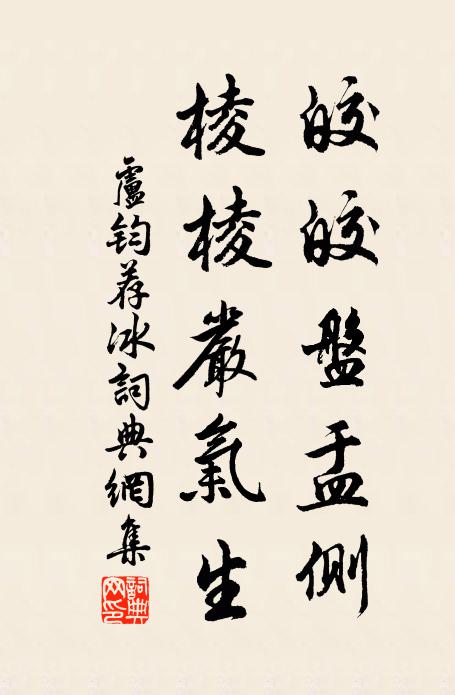 皎皎盤盂側
棱棱嚴氣生
盧鈞荐冰詞典網集
詞典網印